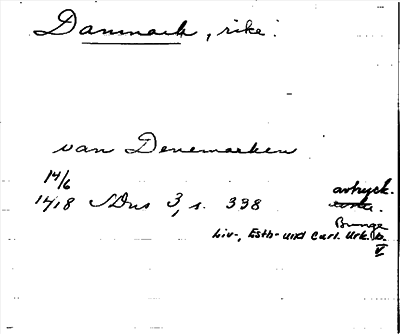 Danmark, rike.
van Denemarken
14/6
1418 SDns 3, s. 338 avtryck.
Bunge
Liv-, Esth- und Curl. Urk. b.
V